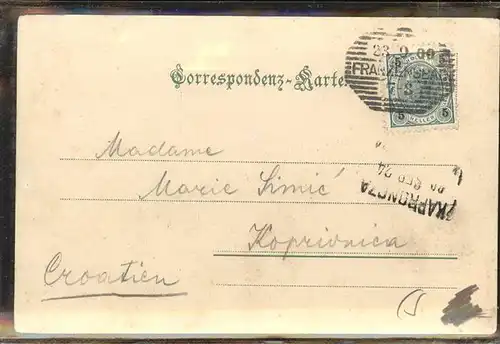 23 9 00
FRANZENSBAD
Correspondenz-Karte
5 5
HELLER
Madame
Marie Simić
KAPRONCZA
SEP 24
Koprivnica
Croatien